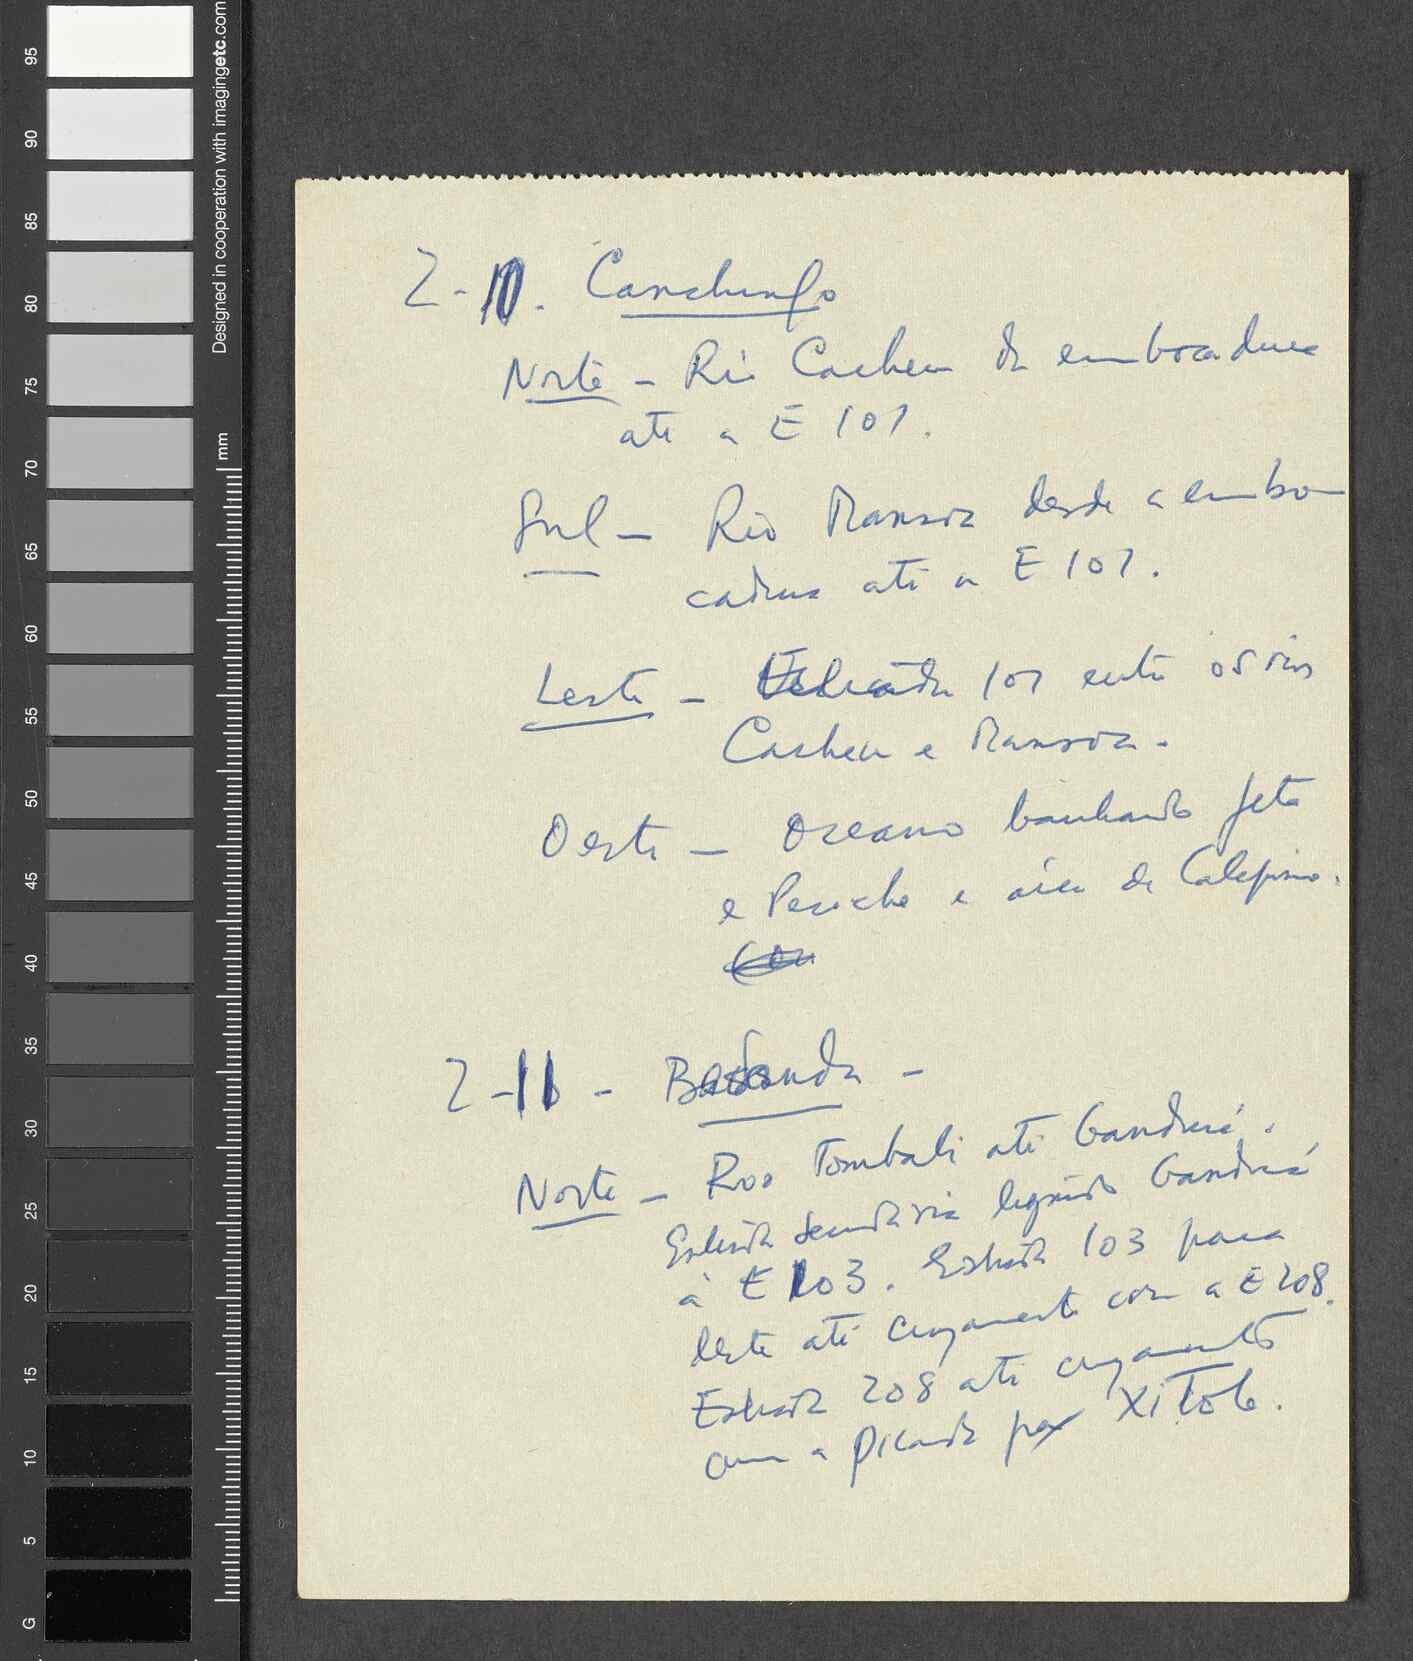 95
90
85
80
75
70
65
60
55
50
45
40
35
30
25
20
15
10
5
G
Designed in cooperation with imagingetc.com
mm
2-10. Canchungo
Norte - Rio Cacheu da embocadura
até a E 101.
Sul - Rio Mansoa desde a embo
cadura até a E 101.
Leste - Estrada 101 entre os rios
Cacheu e Mansoa.
Oeste - Oceano banhando Jeta
e Pecixe e área de Calequisse.
2-11 - Bafanda -
Norte - Rio Tombali até Ganduá.
Estrada secundária ligando Ganduá
à E 103. Estrada 103 para
leste até cruzamento com a E 208.
Estrada 208 até cruzamento
com a picada para Xitole.